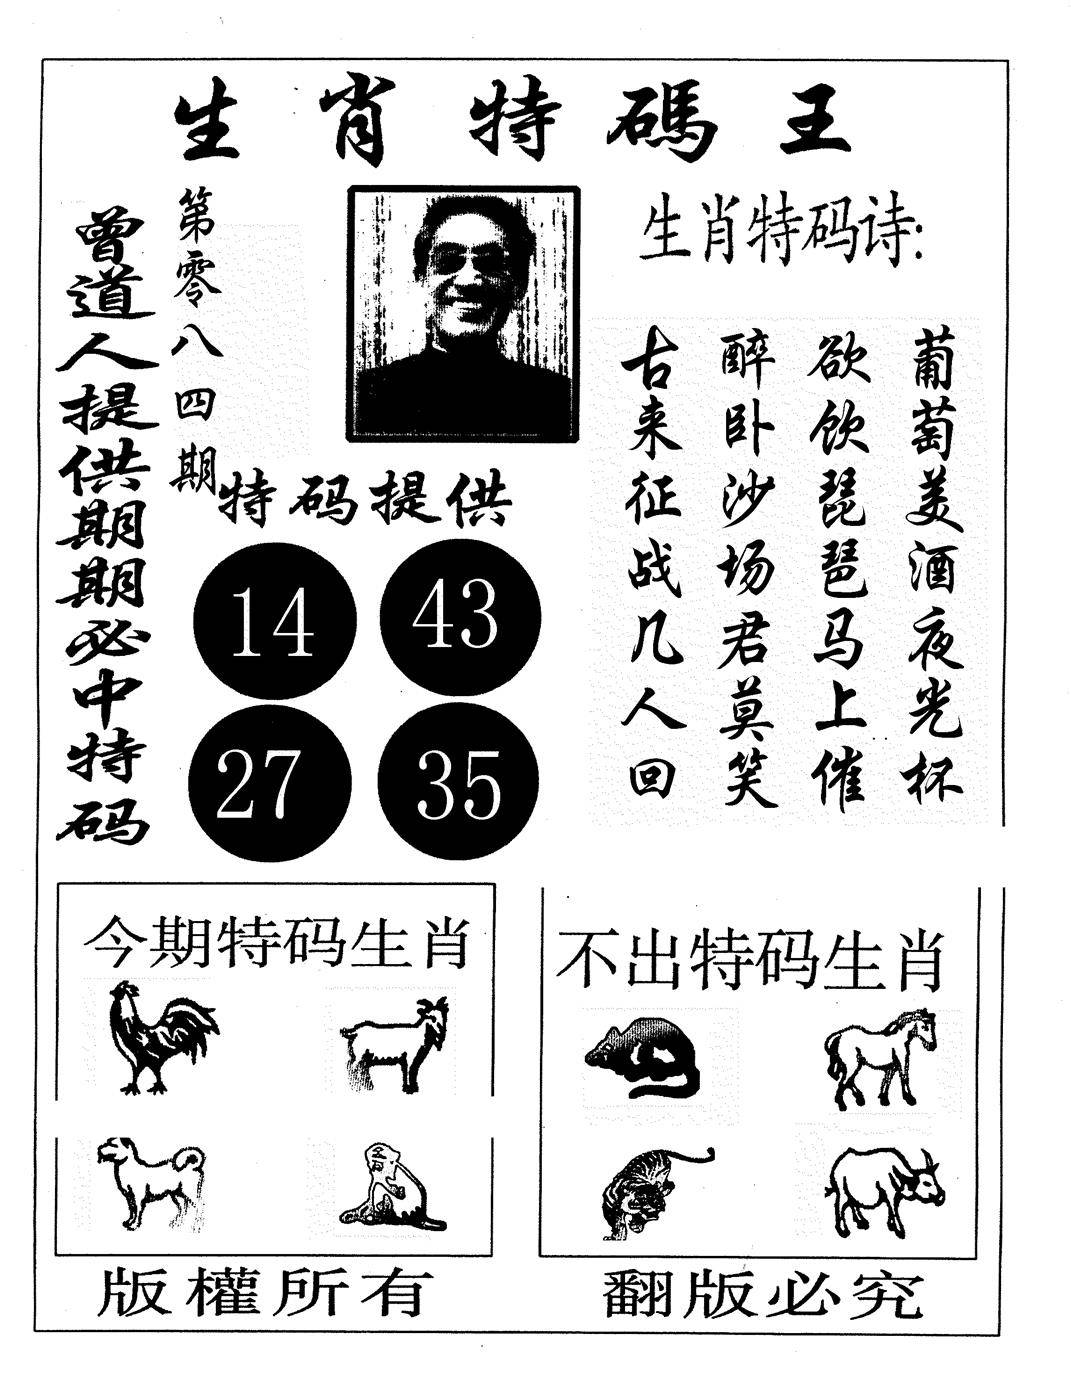 生肖特碼王
曾道人提供期期必中特码
第零八四期
生肖特码诗:
葡萄美酒夜光杯
欲饮琵琶马上催
醉卧沙场君莫笑
古来征战几人回
特码提供
14 43
27 35
今期特码生肖
不出特码生肖
版權所有
翻版必究